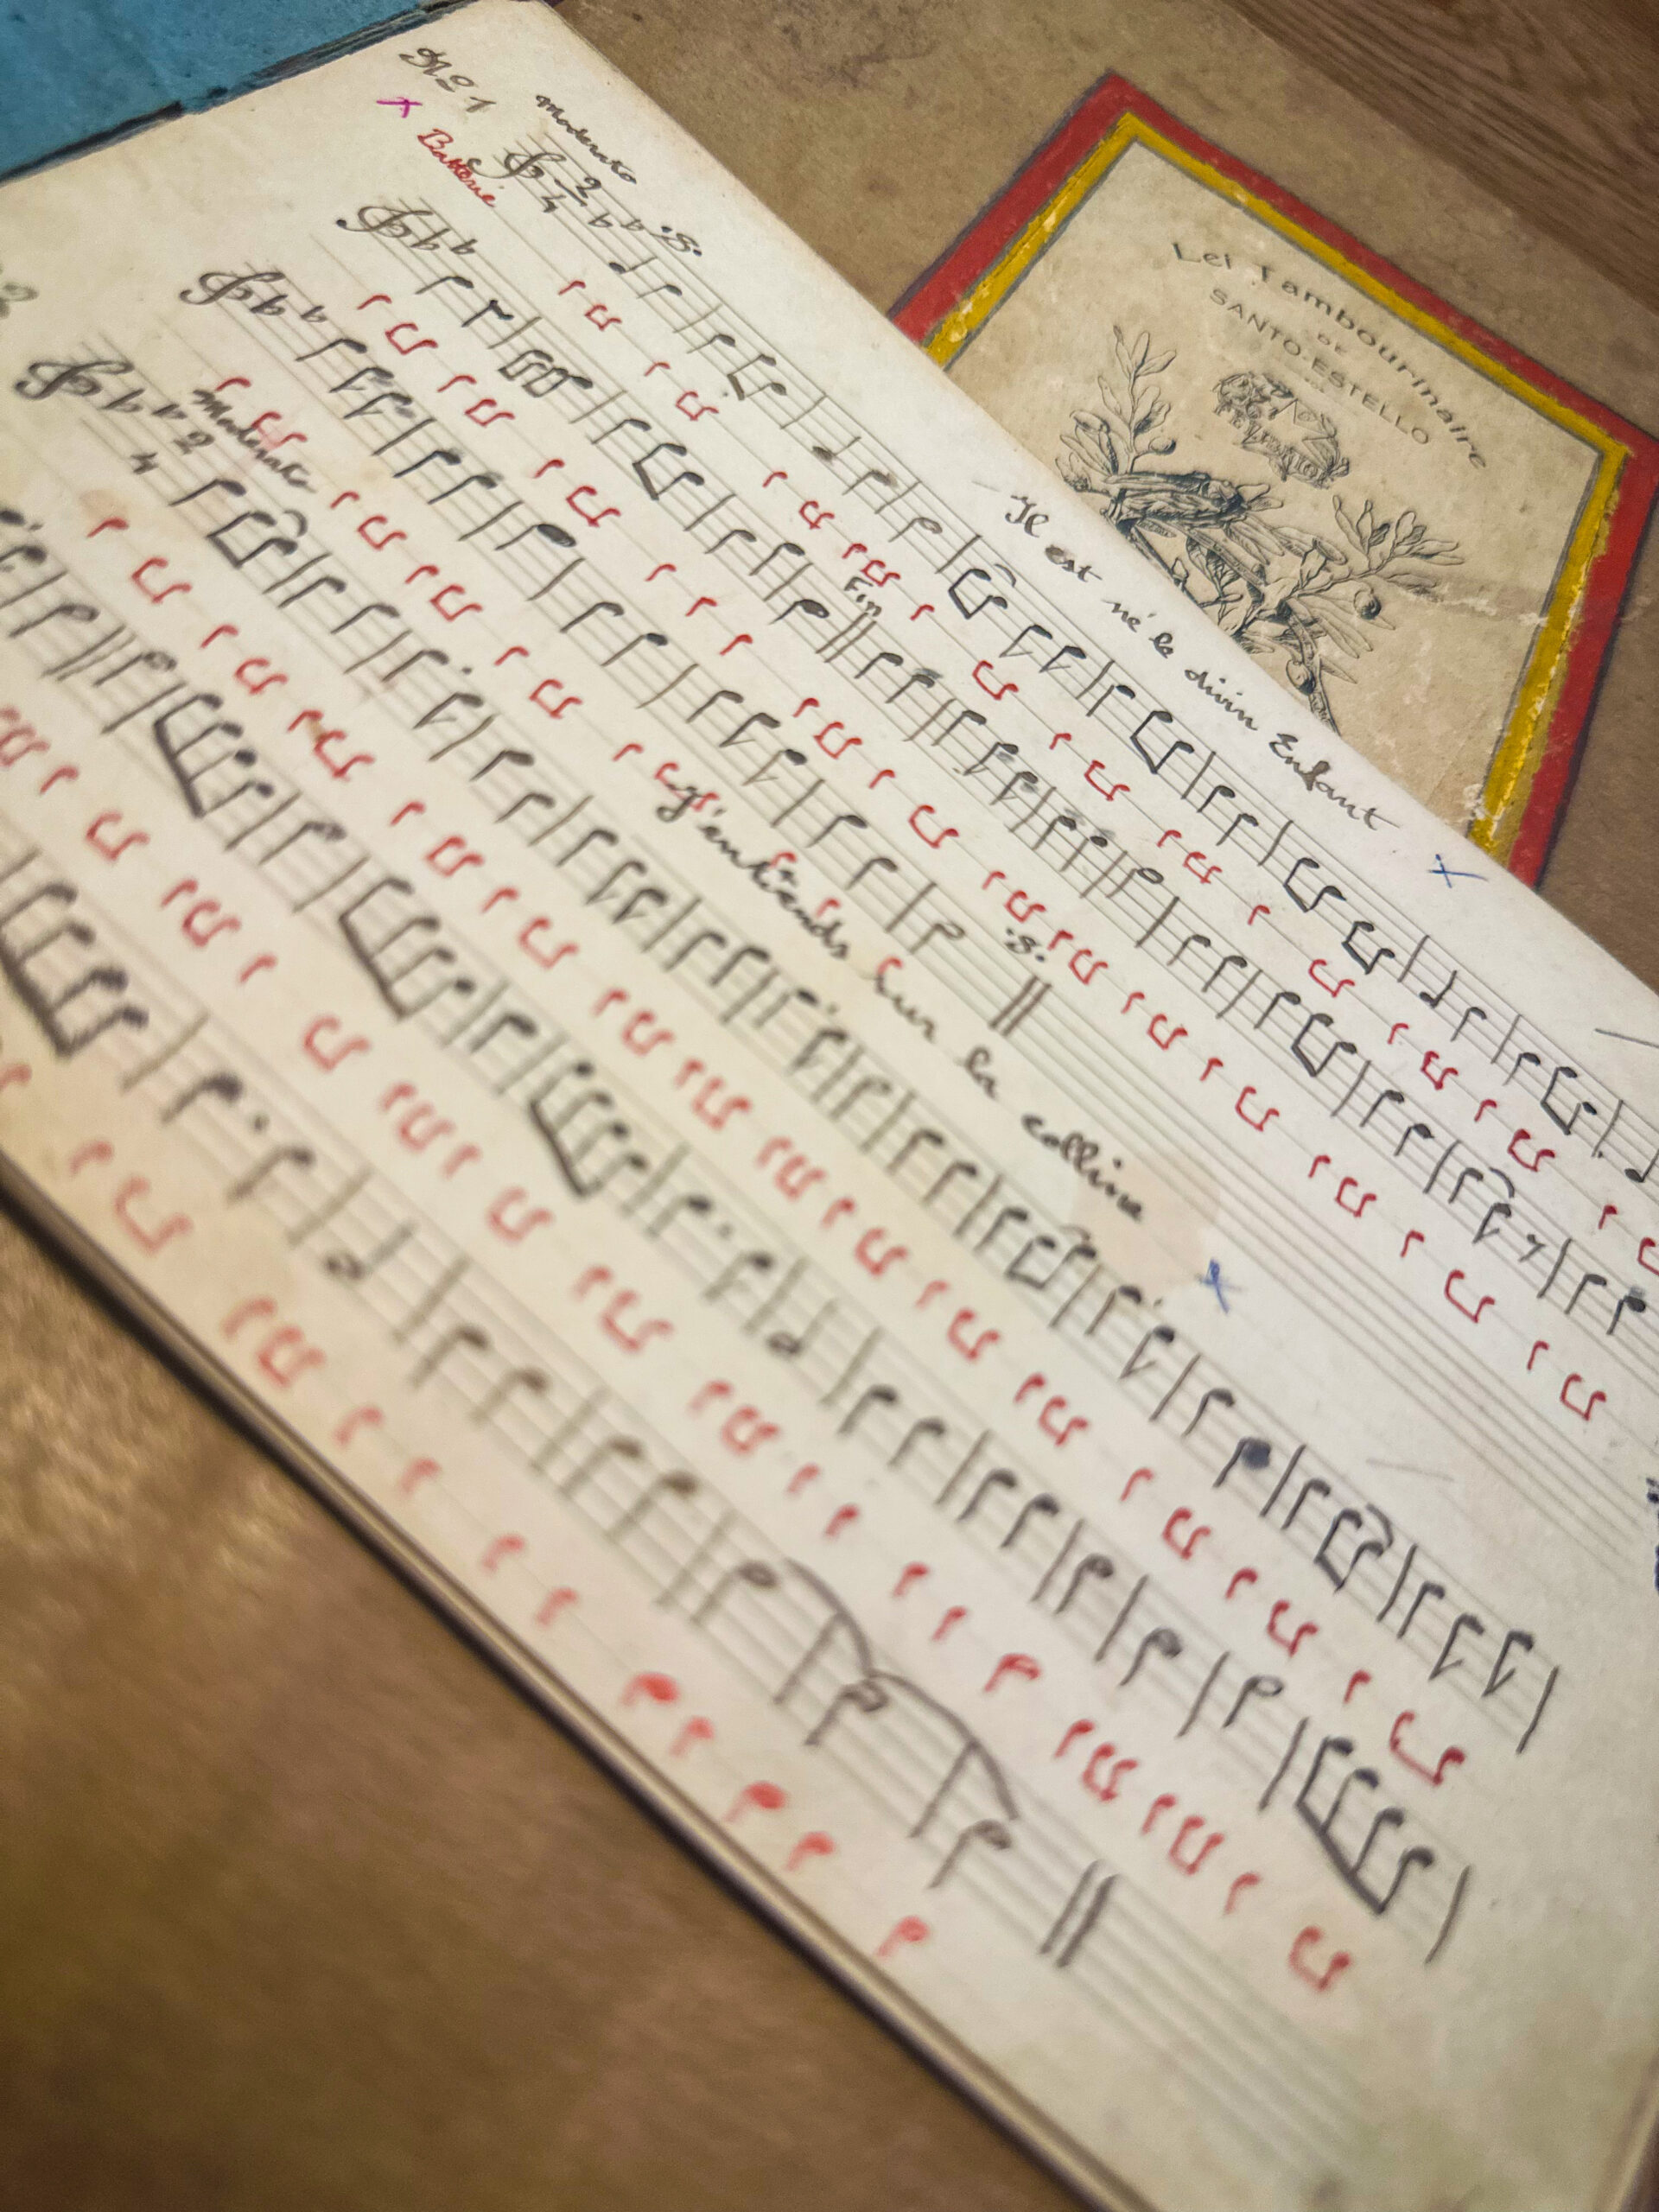 Nº 1
Moderato
Il est né le divin Enfant
x
x Batterie
2
4
Fin
Moderato
J'entends sur la colline
x
2
4
Lei Tambourinaire
DE
SANTO-ESTELLO